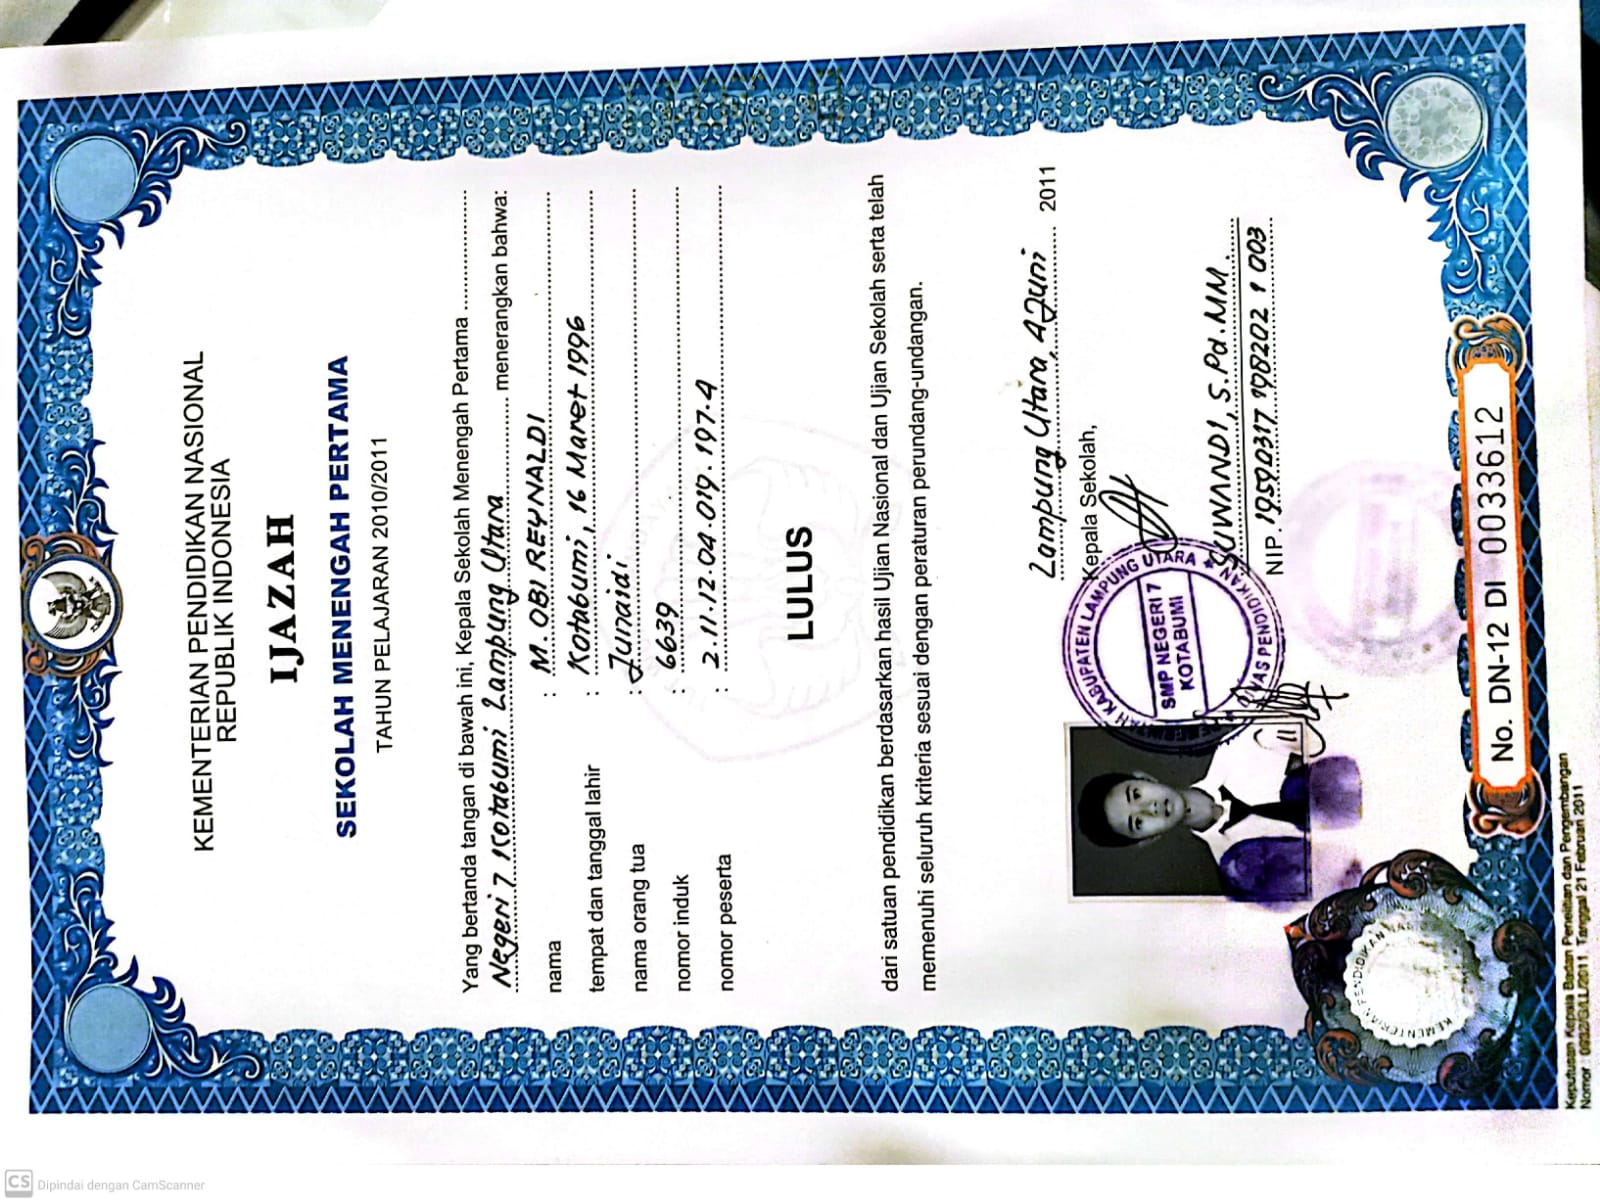 KEMENTERIAN PENDIDIKAN NASIONAL
REPUBLIK INDONESIA
IJAZAH
SEKOLAH MENENGAH PERTAMA
TAHUN PELAJARAN 2010/2011
Yang bertanda tangan di bawah ini, Kepala Sekolah Menengah Pertama
Negeri 7 Kotabumi Lampung Utara menerangkan bahwa:
nama : M. OBI REYNALDI
tempat dan tanggal lahir : Kotabumi, 16 Maret 1996
nama orang tua : Junaidi
nomor induk : 6639
nomor peserta : 2.11.12.04.019.197.4
LULUS
dari satuan pendidikan berdasarkan hasil Ujian Nasional dan Ujian Sekolah serta telah
memenuhi seluruh kriteria sesuai dengan peraturan perundang-undangan.
Lampung Utara, 4 Juni 2011
Kepala Sekolah,
KABUPATEN LAMPUNG UTARA
SMP NEGERI 7
KOTABUMI
DINAS PENDIDIKAN
SUWANDI, S.Pd. MM.
NIP. 19590317 198202 1 003
KEMENTERIAN PENDIDIKAN
No. DN-12 DI 0033612
Keputusan Kepala Badan Penelitian dan Pengembangan
Tanggal 21 Februari 2011
CS Dipindai dengan CamScanner